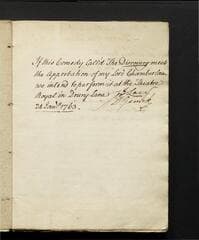 If this Comedy call'd The Discovery meet
the Approbation of my Lord Chamberlain,
we intend to perform it at the Theatre
Royal in Drury Lane
24 Jan.ry 1763.